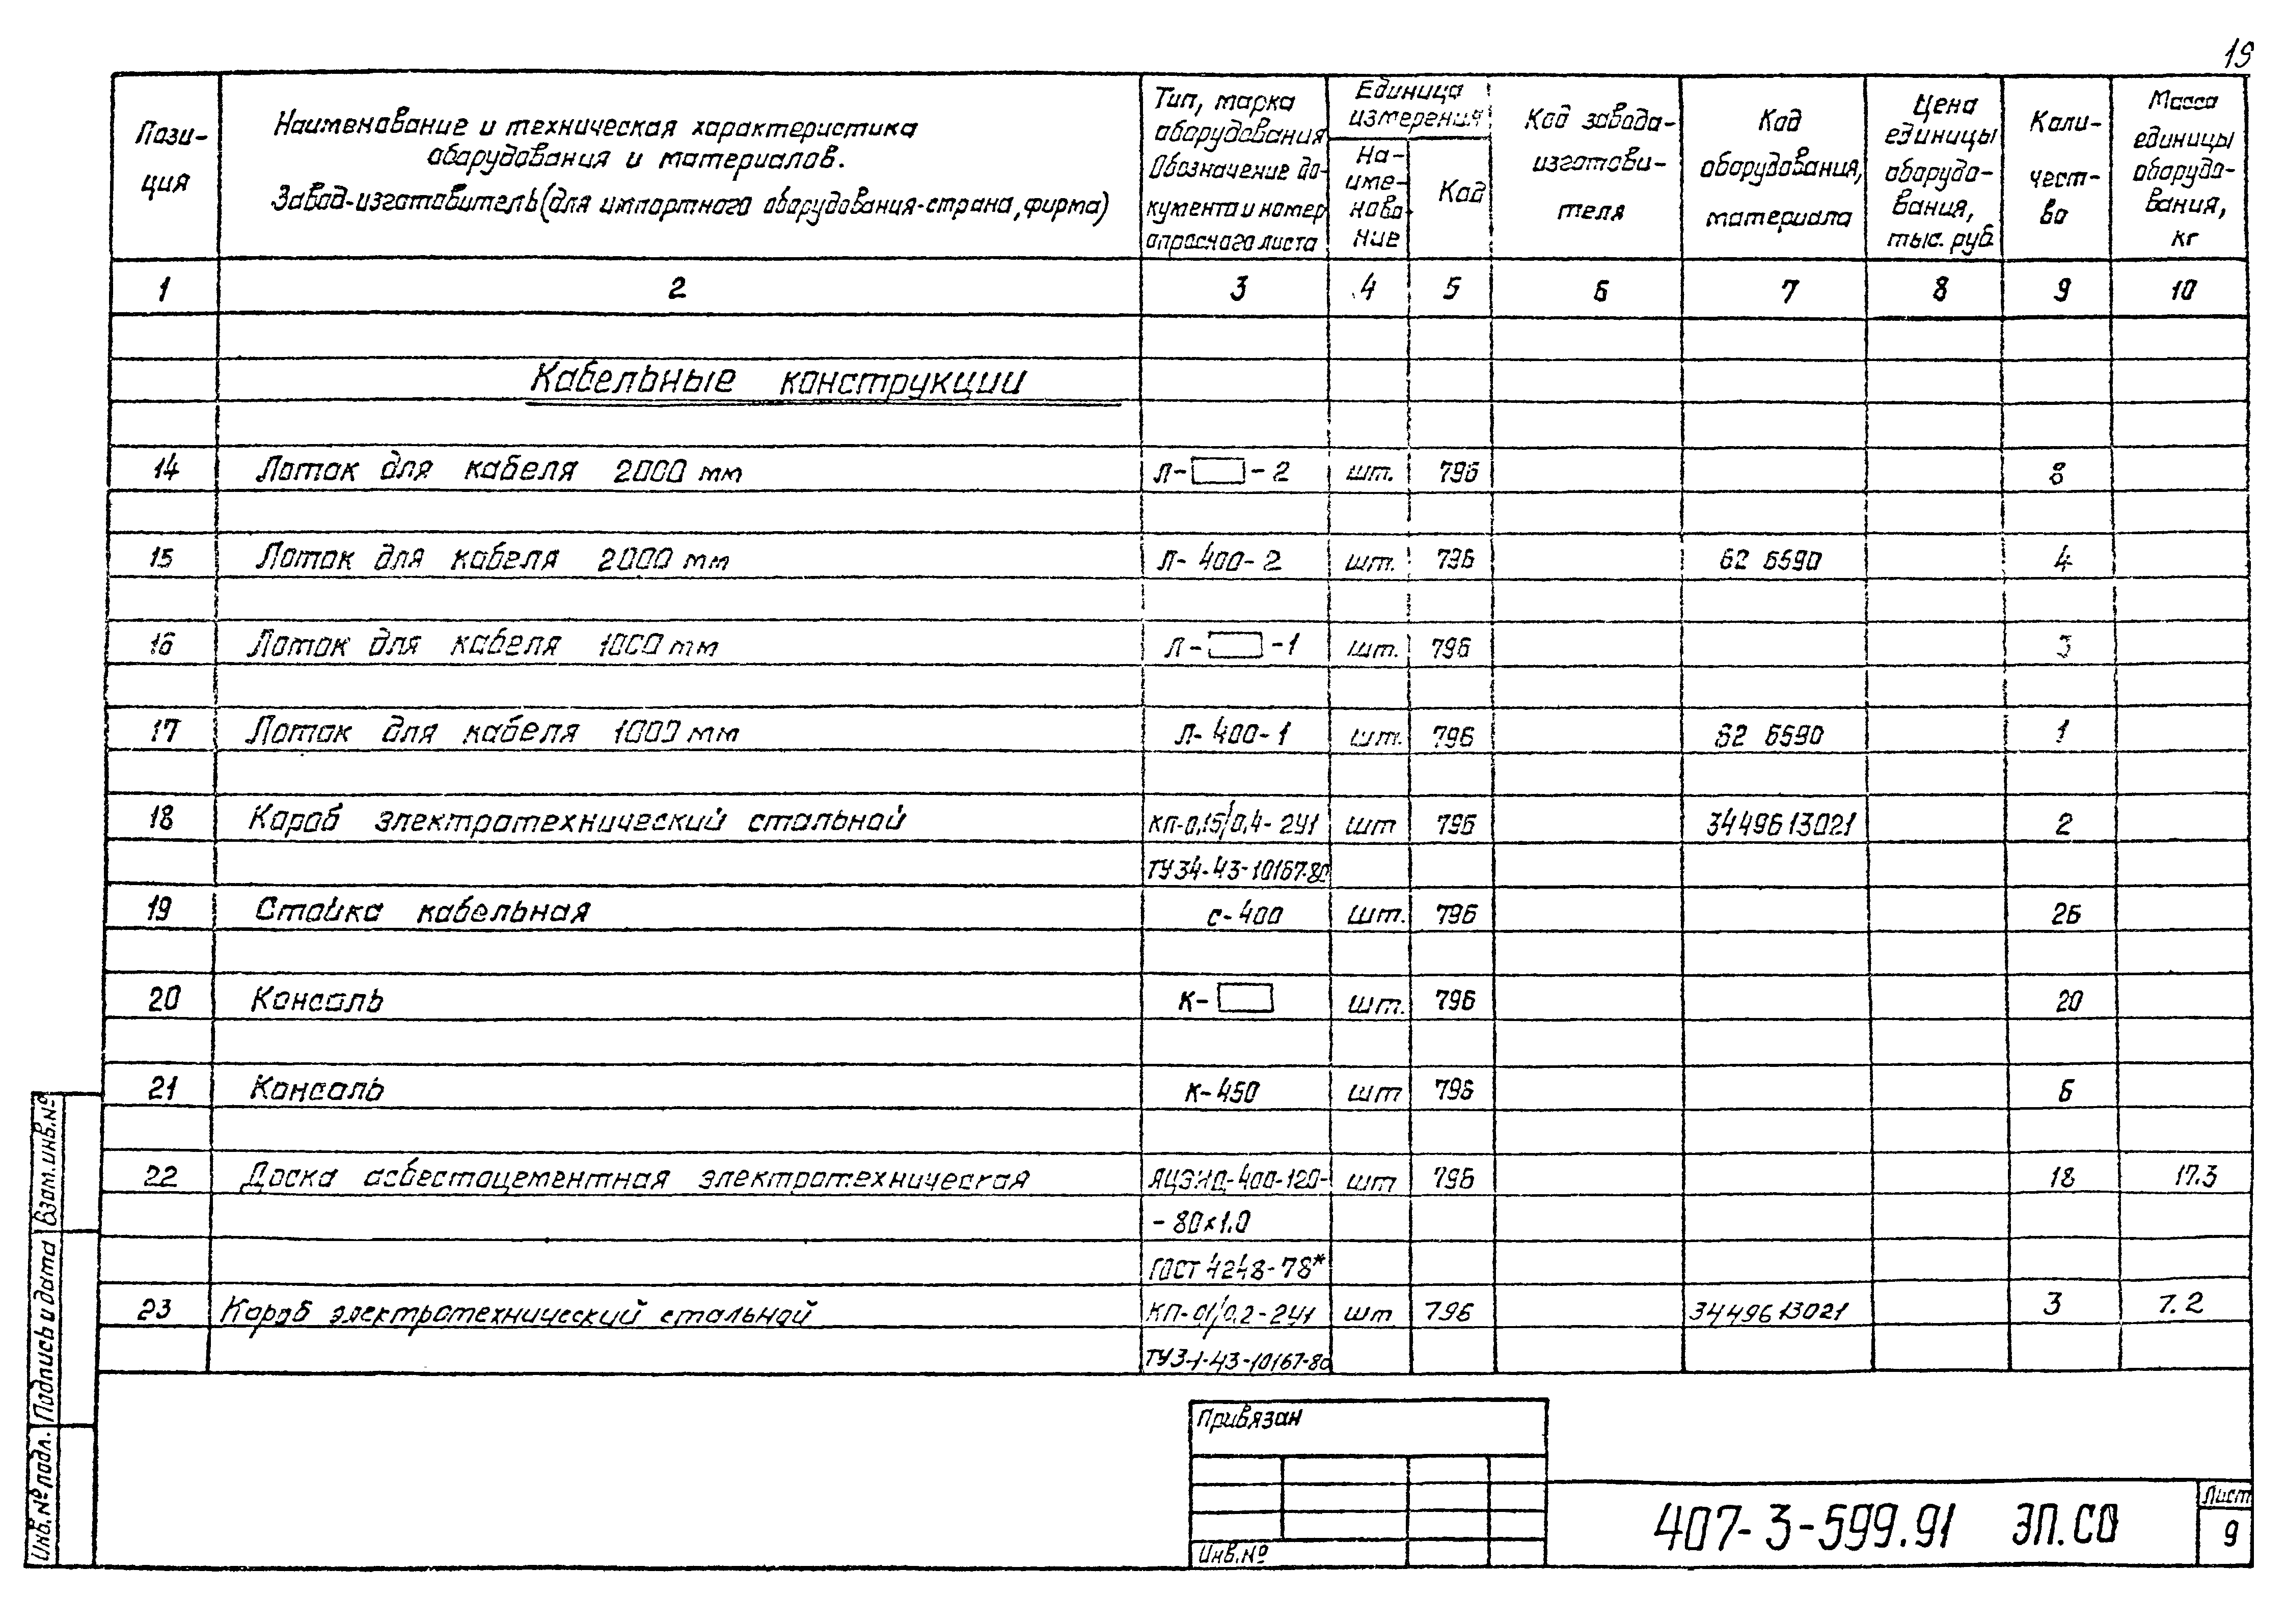 19
Пози-
ция
Наименование и техническая характеристика
оборудования и материалов.
Завод-изготовитель (для импортного оборудования-страна, фирма)
Тип, марка
оборудования
Обозначение до-
кумента и номер
опросного листа
Единица
измерения
На-
име-
нова-
ние
Код
Код завода-
изготови-
теля
Код
оборудования,
материала
Цена
единицы
оборудо-
вания,
тыс. руб.
Коли-
чест-
во
Масса
единицы
оборудо-
вания,
кг
1 2 3 4 5 6 7 8 9 10
Кабельные конструкции
14 Лоток для кабеля 2000 мм Л-▭-2 шт. 796 8
15 Лоток для кабеля 2000 мм Л-400-2 шт. 796 62 6590 4
16 Лоток для кабеля 1000 мм Л-▭-1 шт. 796 3
17 Лоток для кабеля 1000 мм Л-400-1 шт. 796 62 6590 1
18 Короб электротехнический стальной КП-0,15/0,4-2У1 шт 796 3449613021 2
ТУ34-43-10167-80
19 Стойка кабельная С-400 шт. 796 26
20 Консоль К-▭ шт. 796 20
21 Консоль К-450 шт 796 6
22 Доска асбестоцементная электротехническая АЦЭИД-400-120- шт 796 18 17.3
-80×1.0
ГОСТ 4248-78*
23 Короб электротехнический стальной КП-0,1/0,2-2У1 шт 796 3449613021 3 7.2
ТУ34-43-10167-80
Взам.инв.№
Подпись и дата
Инв.№ подл.
Привязан
Инв.№
407-3-599.91 ЭП.СО
Лист
9